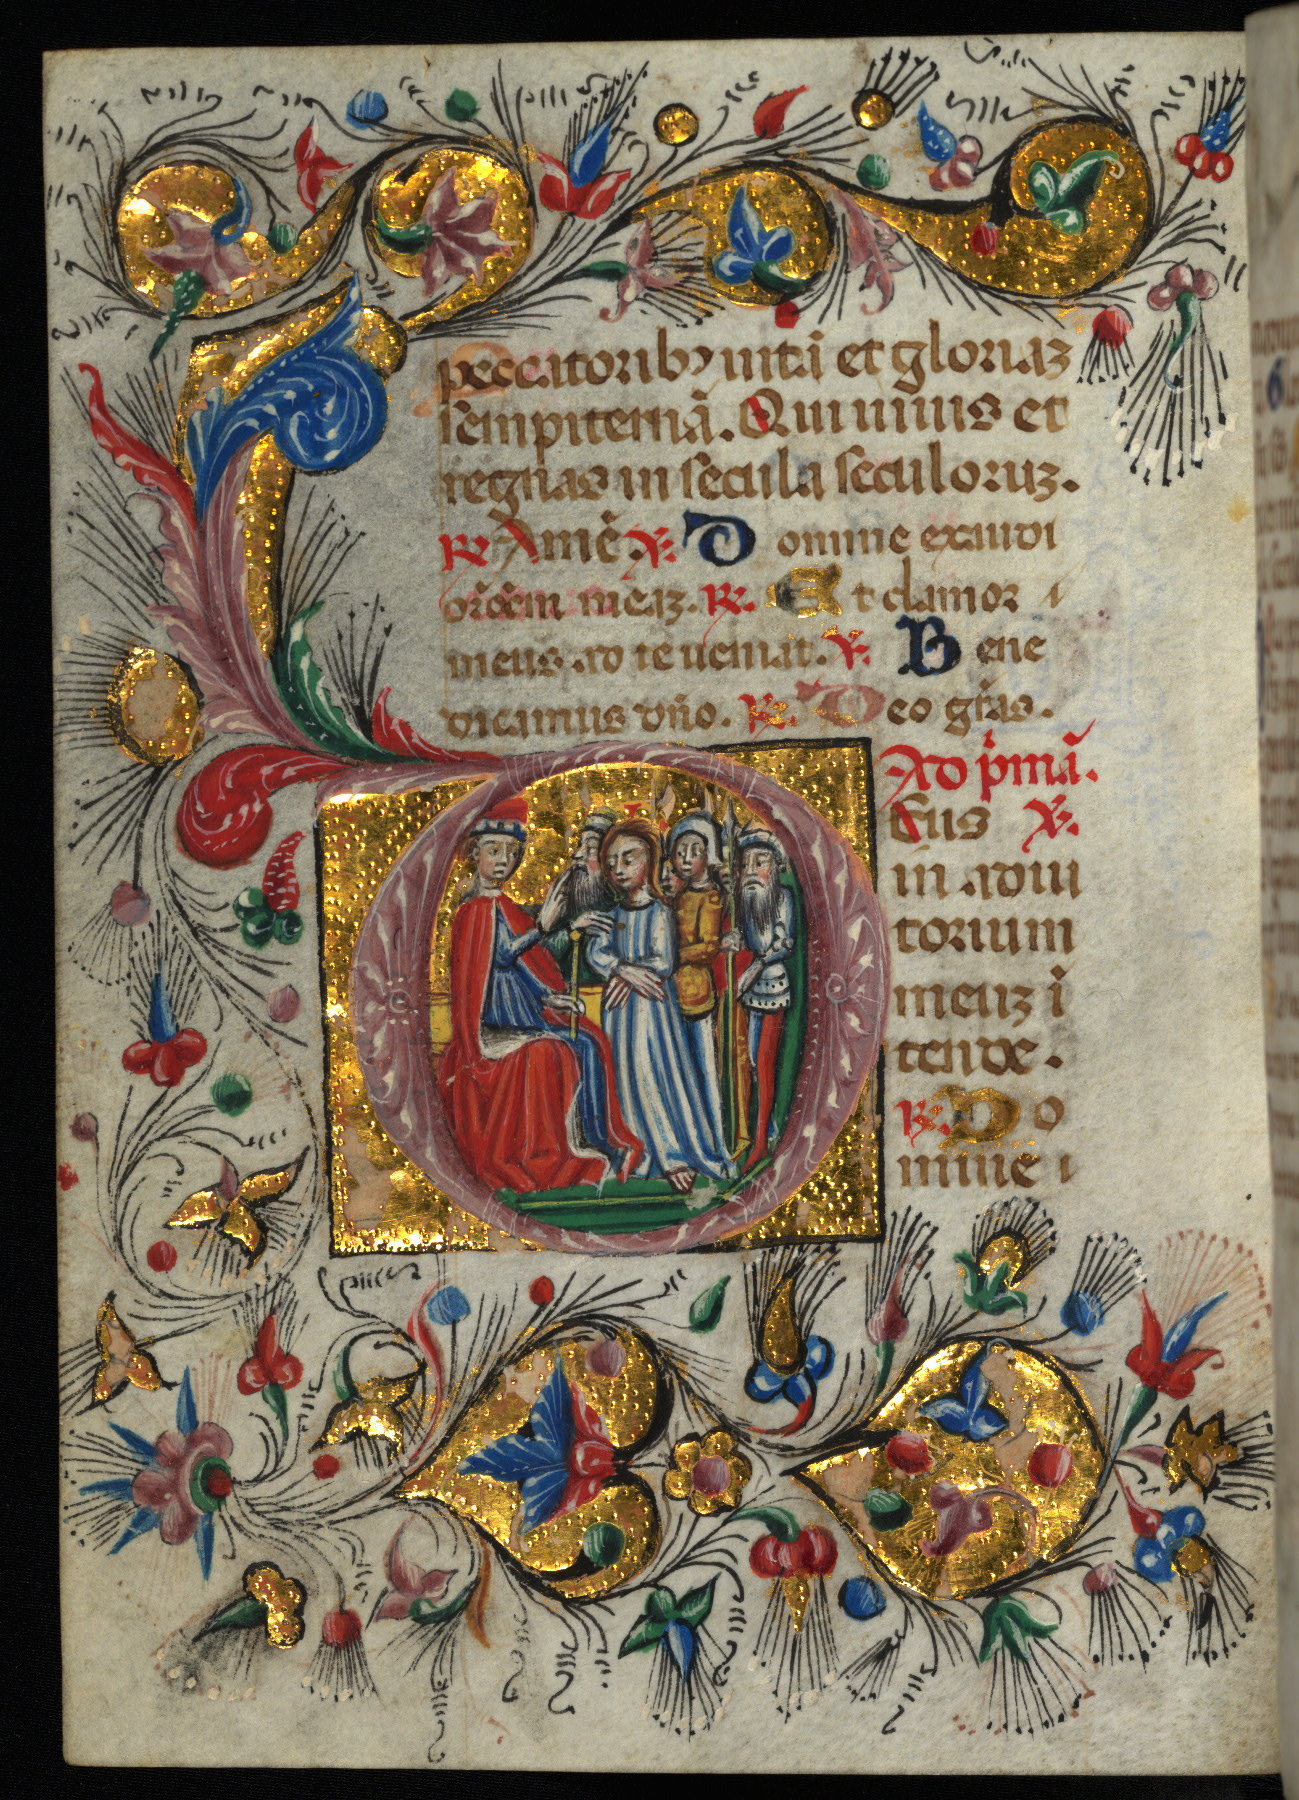 peccatoribꝰ uitā et gloriaz
sempiternā. Qui uiuis et
regnas in secula seculoruz.
℟ Amē. ℣. Domine exaudi
orōem meaz. ℟. Et clamor
meus ad te ueniat. ℣. Bene
dicamus dño. ℟. Deo grās.
Ad p̄mā.
Eus ℣.
in adiu
torium
meuz ī
tende.
℟. Do
mine